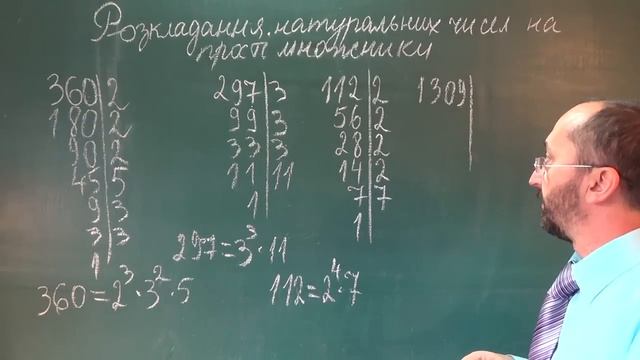 Розкладання натуральних чисел на
прості множники
360 2
180 2
90 2
45 5
9 3
3 3
1
297 3
99 3
33 3
11 11
1
297=3³·11
112 2
56 2
28 2
14 2
7 7
1
1309
360=2³·3²·5
112=2⁴·7